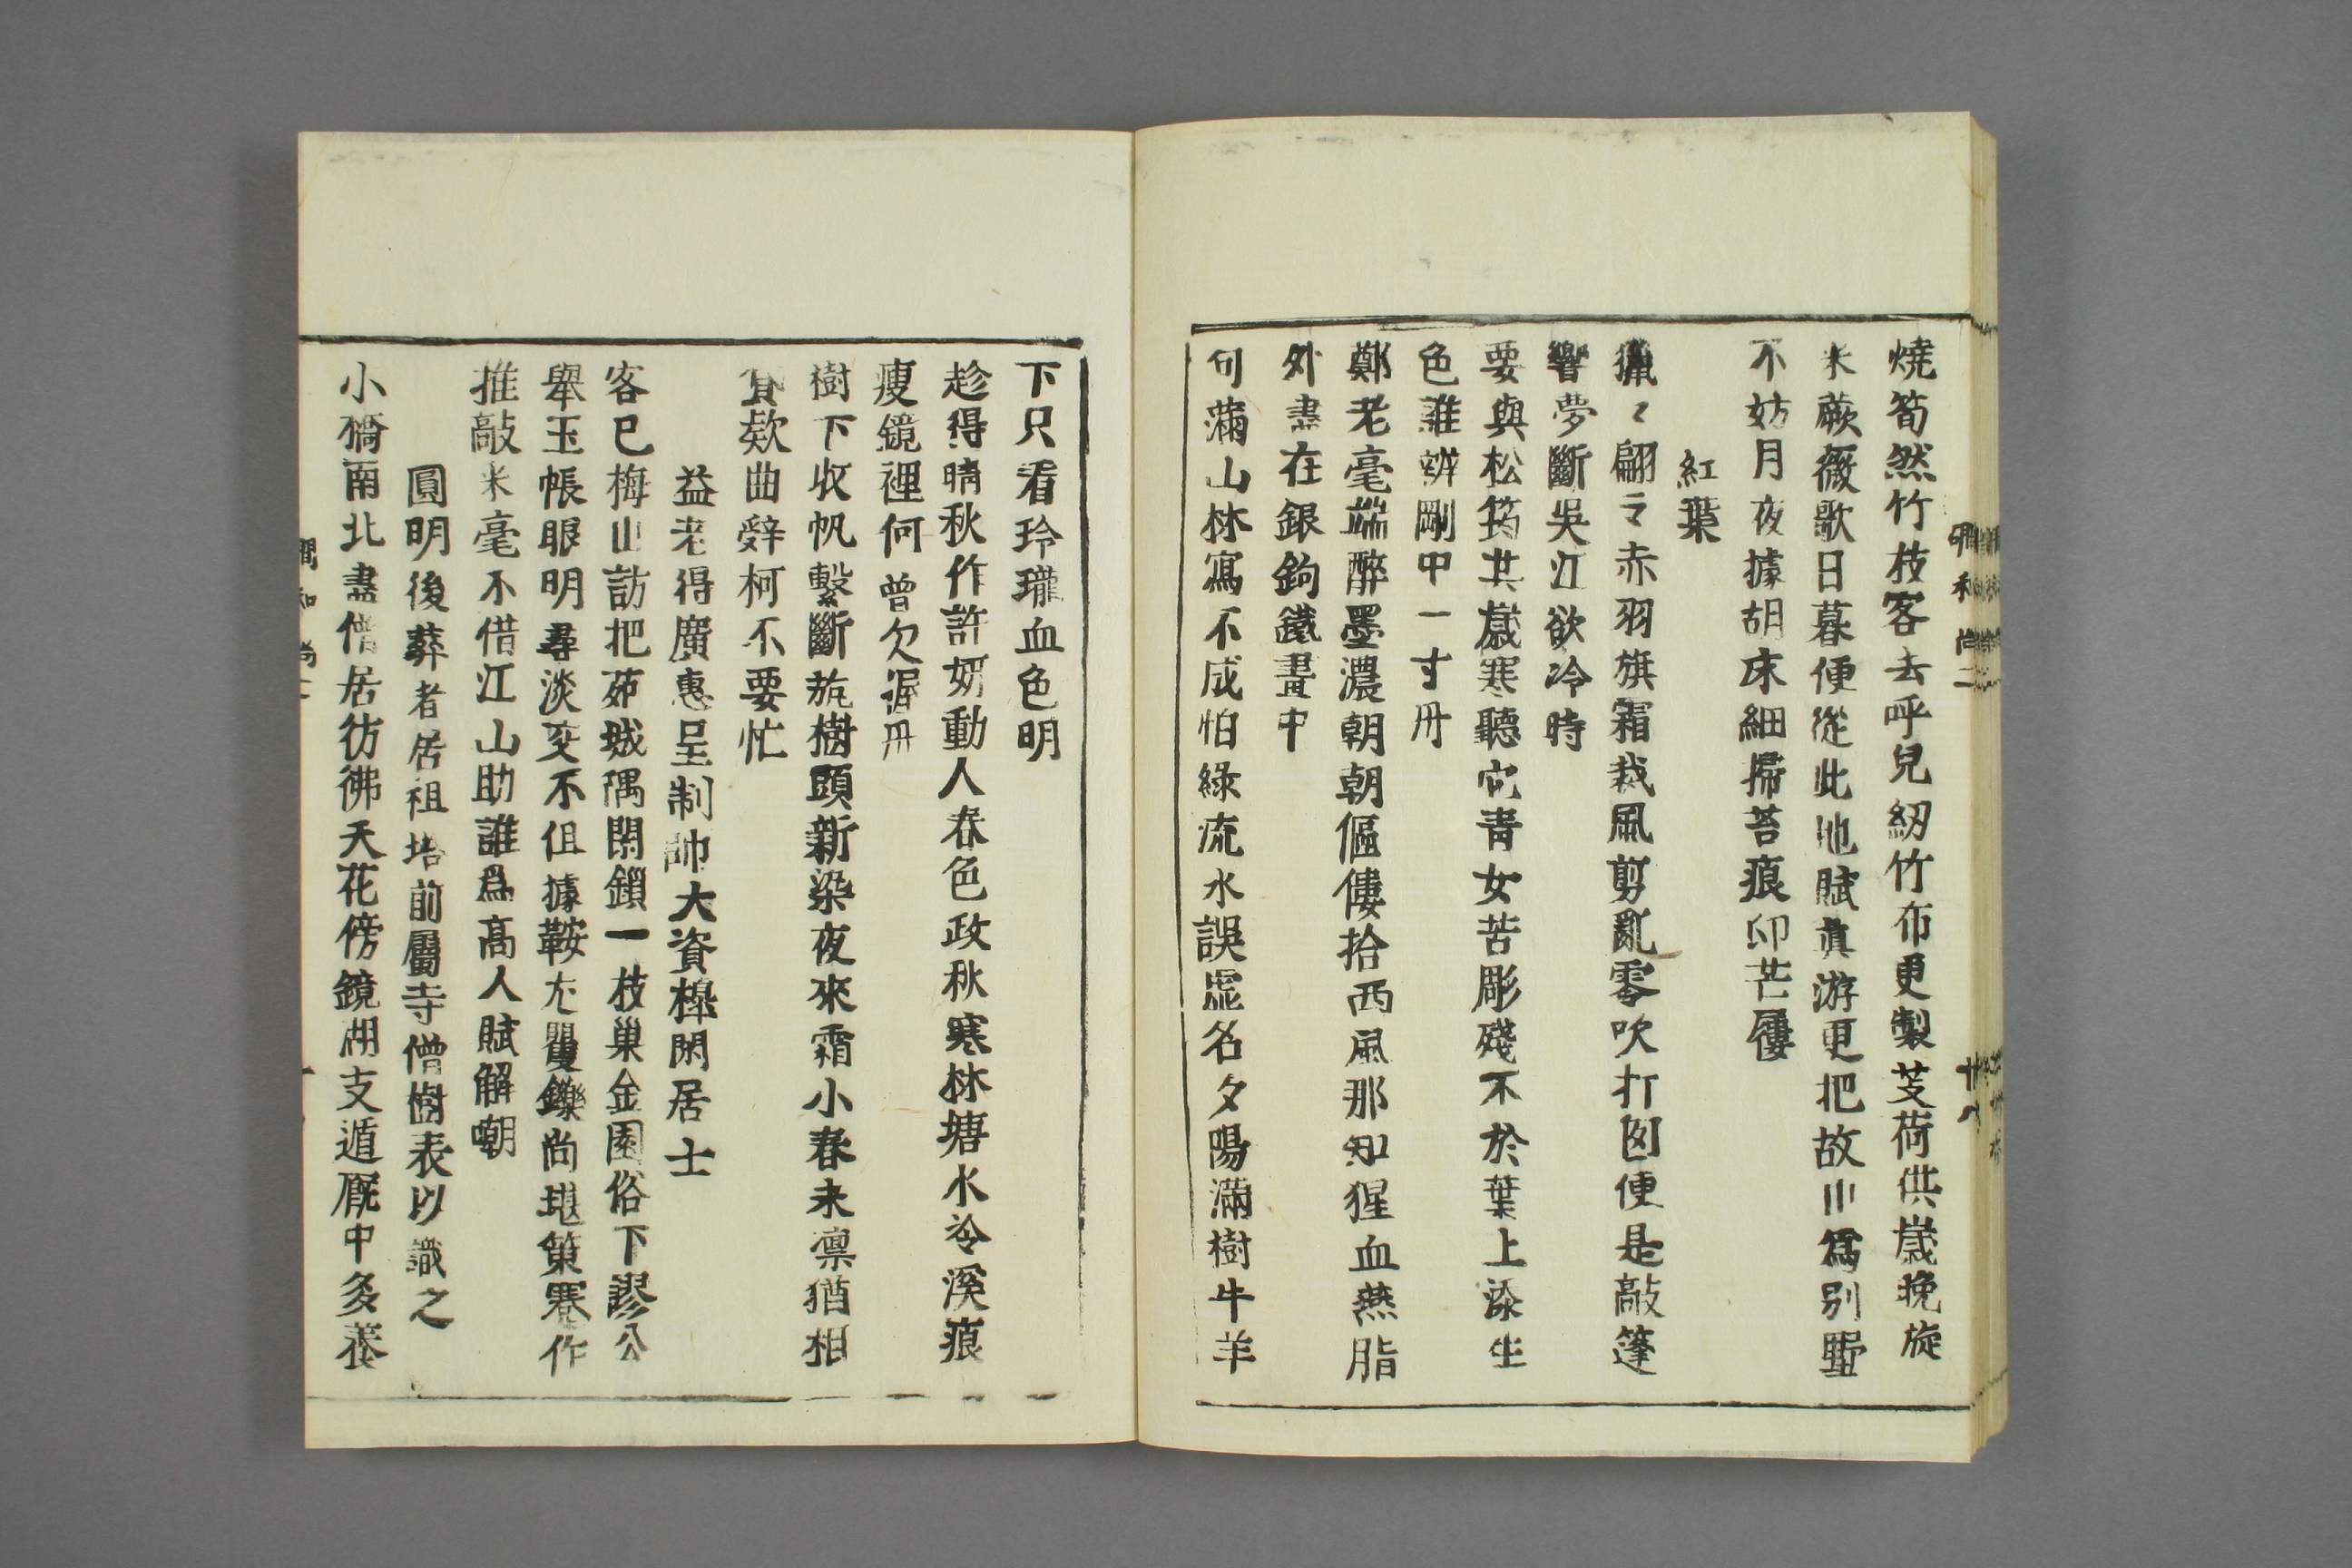 燒筍然竹枝客去呼兒紉竹布更製芰荷供歲晚旋
米蕨薇歌日暮便從此地賦真游更把故山為別墅
不妨月夜據胡床細掃苔痕印芒屨
紅葉
獵〻翩〻赤羽旗霜裁風剪亂零吹打囪便是敲篷
響夢斷吳江欲冷時
要與松筠共歲寒聽它青女苦彫殘不於葉上添生
色誰辨剛中一寸丹
鄭老毫端醉墨濃朝朝傴僂拾西風那知猩血燕脂
外盡在銀鉤鐵畫中
句滿山林寫不成怕緣流水誤虛名夕陽滿樹牛羊
下只看玲瓏血色明
趁得晴秋作許妍動人春色政秋寒林塘水冷溪痕
瘦鏡裡何曾欠渥丹
樹下收帆繫斷航樹頭新染夜來霜小春未凛猶相
貸欵曲辭柯不要忙
益老得廣惠呈制帥大資槔閑居士
客已梅山訪把茆城隅閑鎖一枝巢金園俗下謬公
舉玉帳眼明尋淡交不但據鞍尤矍鑠尚堪策蹇作
推敲米毫不借江山助誰為高人賦解嘲
圓明後葬者居祖塔前屬寺僧樹表以識之
小橋南北盡僧居彷彿天花傍鏡湖支遁厩中多養